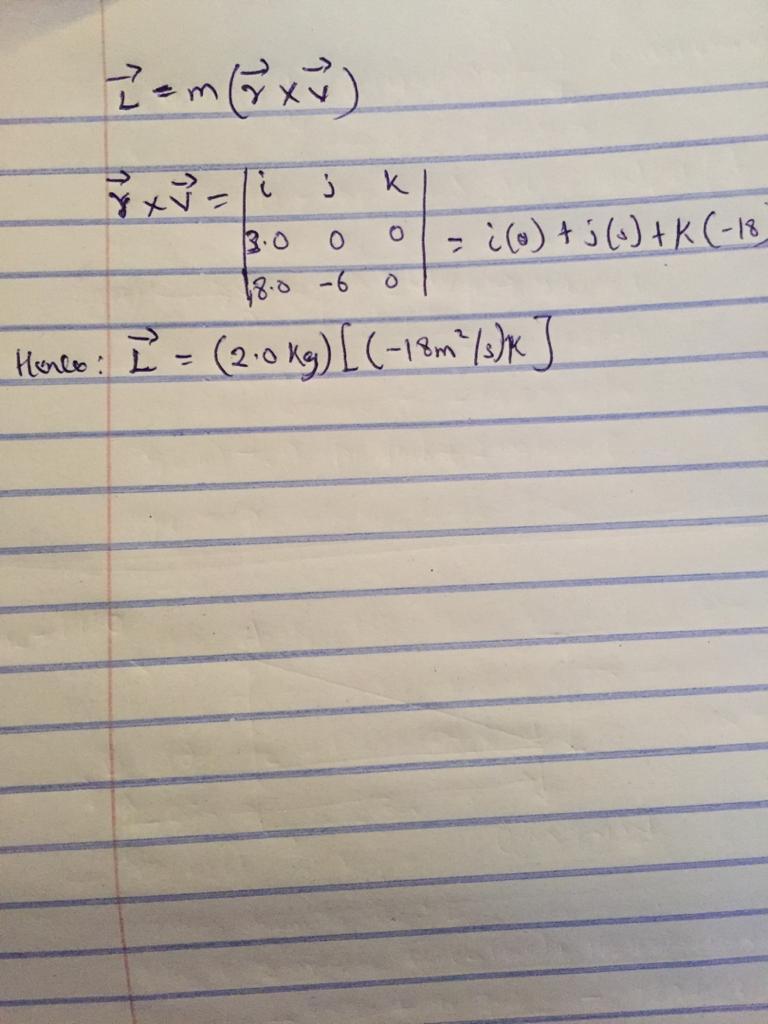 L⃗ = m(r⃗ × v⃗)
r⃗ × v⃗ = | i j k |
| 3.0 0 0 | = i(0) + j(0) + k(-18)
| 8.0 -6 0 |
Hence: L⃗ = (2.0 kg)[(-18m²/s)k]